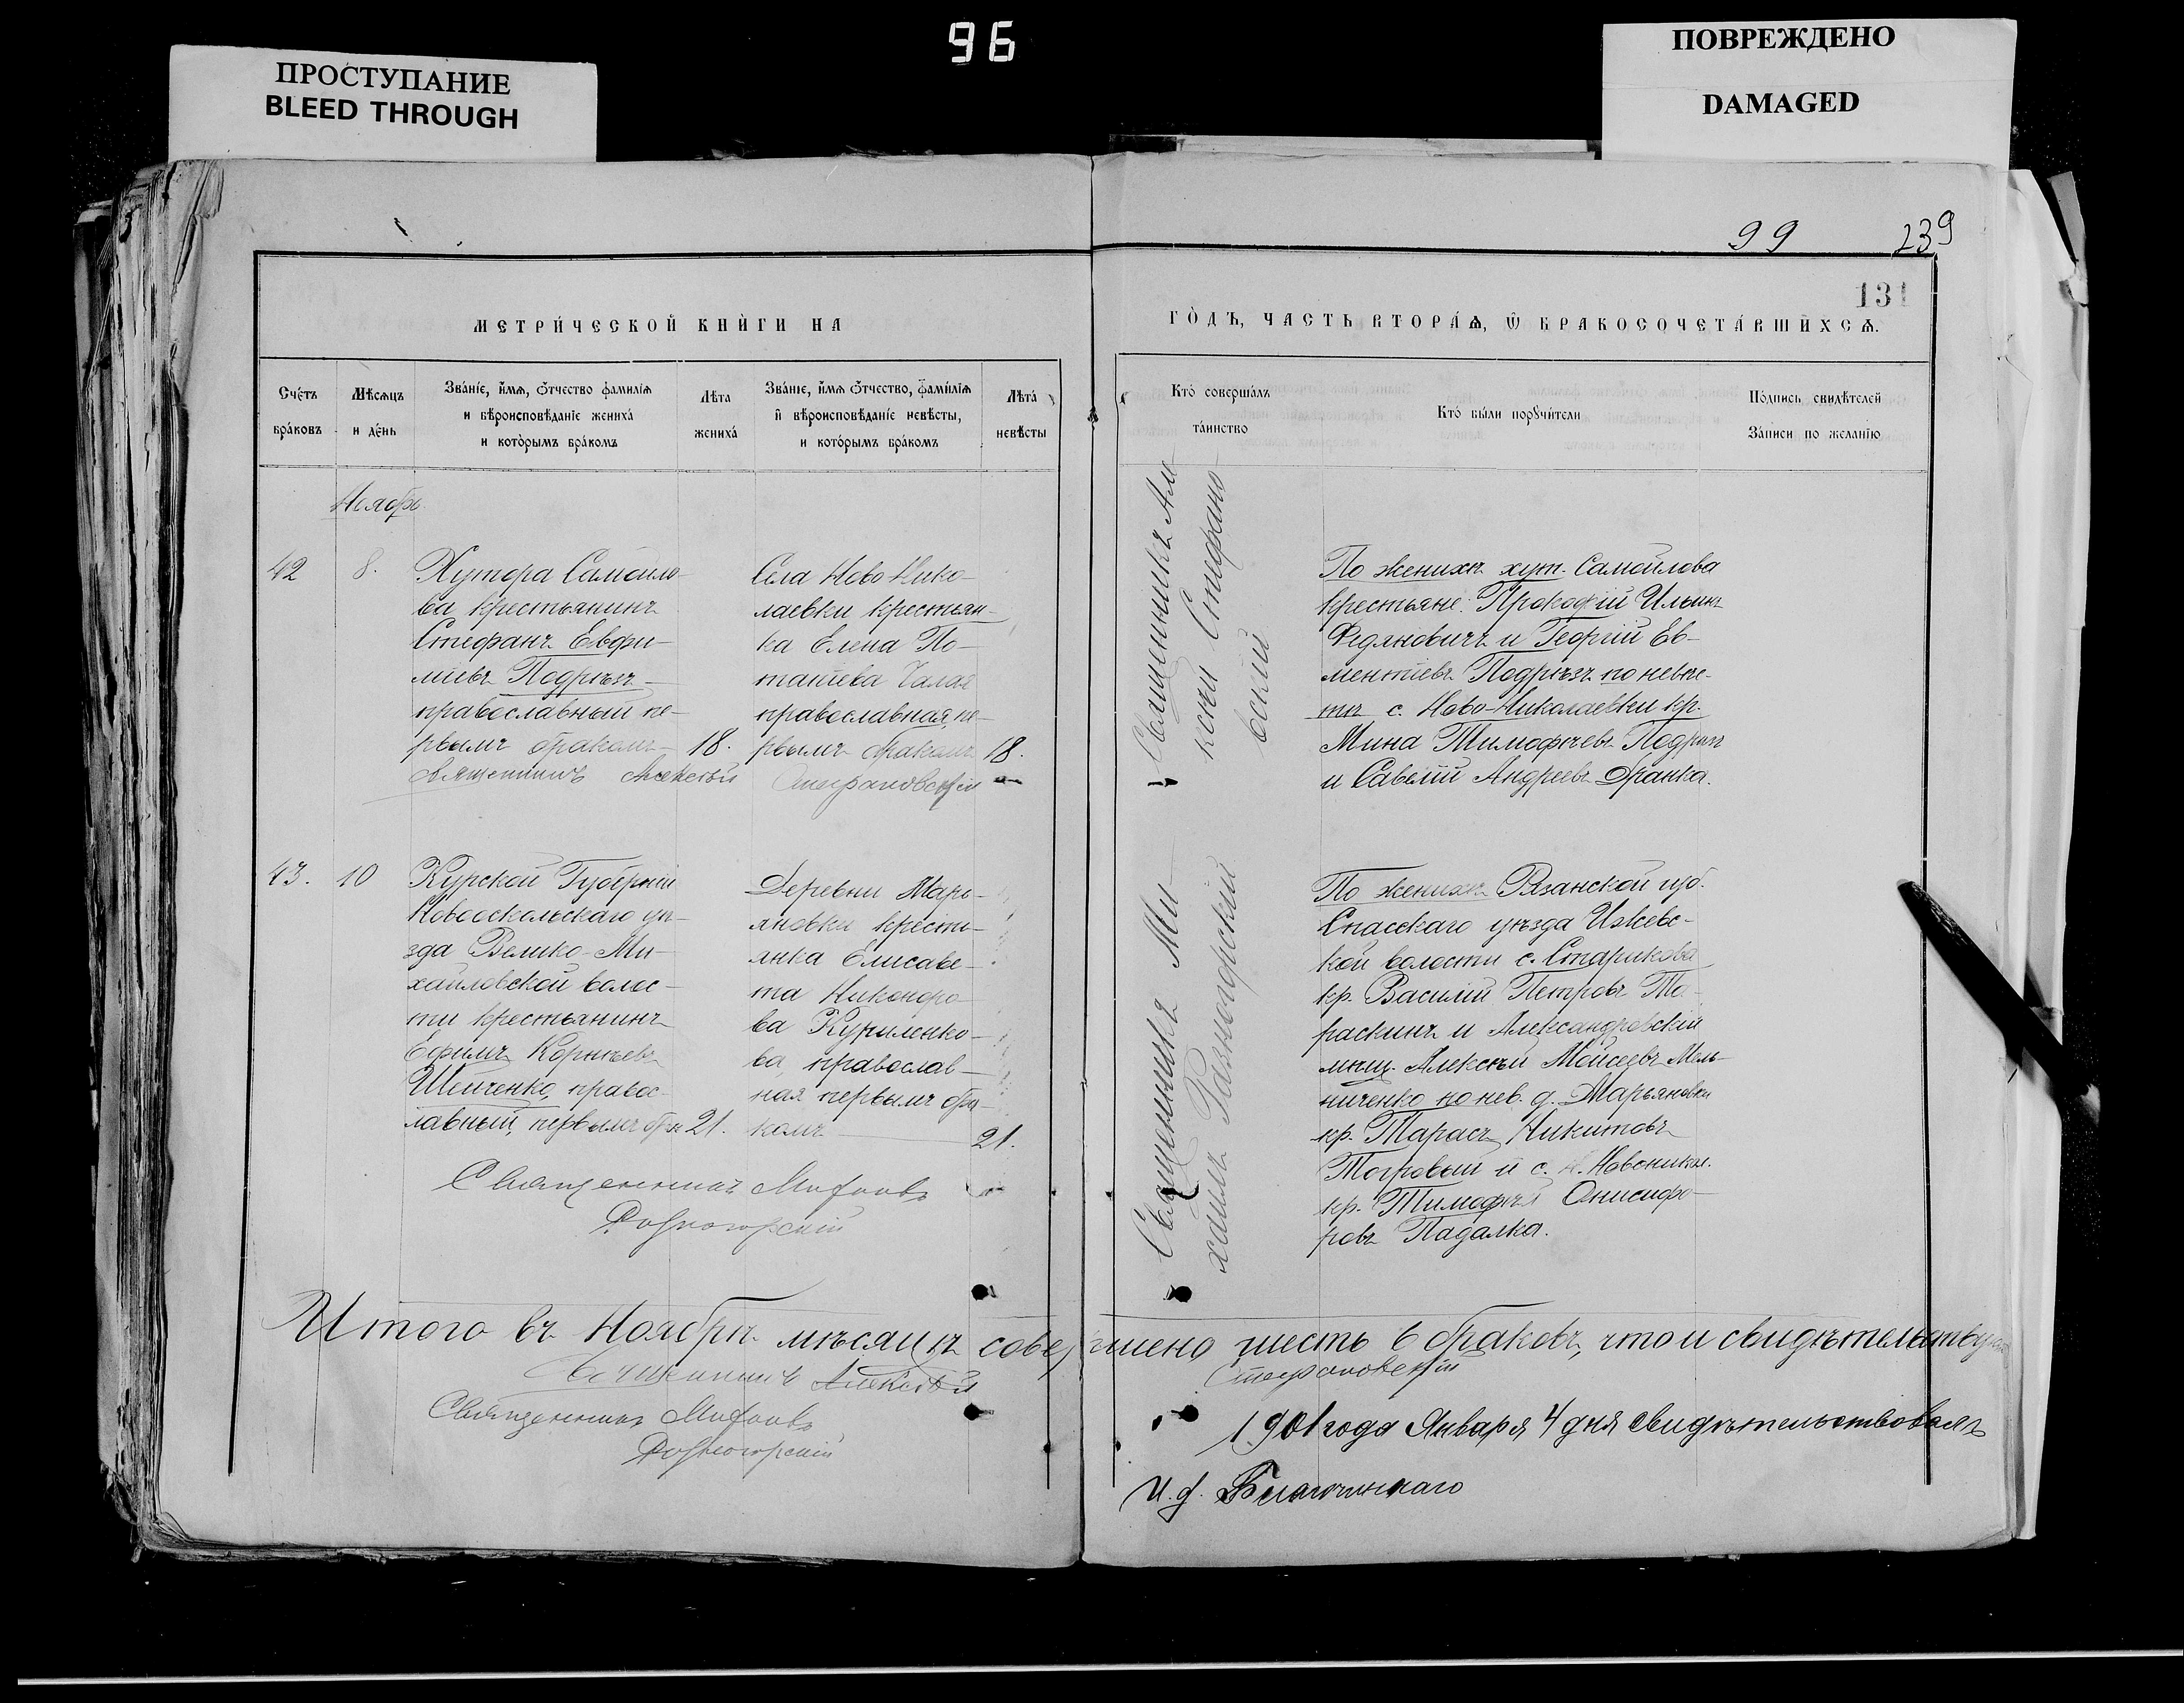 96
ПРОСТУПАНИЕ
BLEED THROUGH
ПОВРЕЖДЕНО
DAMAGED
99 239
131
МЕТРИ́ЧЕСКОЙ КНИ́ГИ НА
ГО́ДЪ, ЧАСТЬ ВТОРА́Ѧ, Ѿ БРАКОСОЧЕТА́ВШИХСѦ.
Сче́тъ
бра́ковъ
Мѣсѧцъ
и де́нь
Зва́нїе, и́мѧ, ѻ́тчество фамилїѧ
и вѣроисповѣданїе жениха́
и кото́рымъ бра́комъ
Лѣта
жениха́
Зва́нїе, и́мѧ ѻ́тчество, фами́лїѧ
и вѣроисповѣданїе невѣсты,
и кото́рымъ бра́комъ
Лѣта́
невѣсты
Кто́ соверша́лъ
та́инство
Кто́ бы́ли порꙋчи́тели
По́дпись свидѣтелей
За́писи по желанїю
Ноябрь
42
8.
Хутора Самойло-
ва крестьянинъ
Стефанъ Евфи-
міевъ Подрѣзъ-
православный пе-
рвымъ бракомъ
18.
Села Ново-Нико-
лаевки крестьян-
ка Елена По-
тапіева Чалая
православная, пе-
рвымъ бракомъ
18.
Священникъ Алексѣй Стефановскій
Священникъ Але-
ксѣй Стефано-
вскій
По женихѣ хут. Самойлова
крестьяне: Прокофій Ильинъ
Федяновичъ и Георгій Ев-
ментіевъ Подрѣзъ по невѣс-
тѣ с. Ново-Николаевки кр.
Мина Тимофѣевъ Подрѣзъ
и Савелій Андреевъ Дранка.
43.
10
Курской Губерніи
Новооскольскаго уѣ-
зда Велико-Ми-
хайловской волос-
ти крестьянинъ
Ефимъ Корнѣевъ
Шейченко, правос-
лавный, первымъ бр.
21.
Деревни Марь-
яновки кресть-
янка Елисаве-
та Никонро-
ва Куриленко-
ва, православ-
ная первымъ бра-
комъ
21.
Священникъ Михаилъ
Разногорскій
Священникъ Ми-
хаилъ Разногорскій
По женихѣ Рязанской губ.
Спасскаго уѣзда Ижевс-
кой волости с. Старикова
кр. Василій Петровъ Та-
раскинъ и Александровскій
мѣщ. Алексѣй Мойсеевъ Мель-
ниченко по нев. д. Марьяновки
кр. Тарасъ Никитовъ
и с. Новоникол.
кр. Тимофѣй Онисифо-
ровъ Падалка.
Итого въ Ноябрѣ мѣсяцѣ совершено шесть 6 браковъ, что и свидѣтельствуемъ
Священникъ Алексѣй Стефановскій
Священникъ Михаилъ
Разногорскій
1901 года Января 4 дня свидѣтельствовалъ
И. д. Благочиннаго